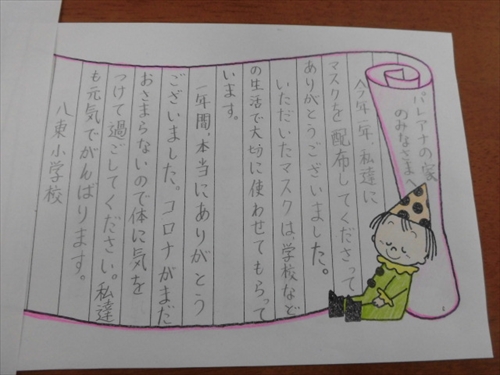 パレアナの家
のみなさま
今年一年、私達に
マスクを配布してくださって
ありがとうございました。
いただいたマスクは学校など
の生活で大切に使わせてもらって
います。
一年間、本当にありがとう
ございました。コロナがまだ
おさまらないので体に気を
つけて過ごしてください。私達
も元気でがんばります。
八東小学校